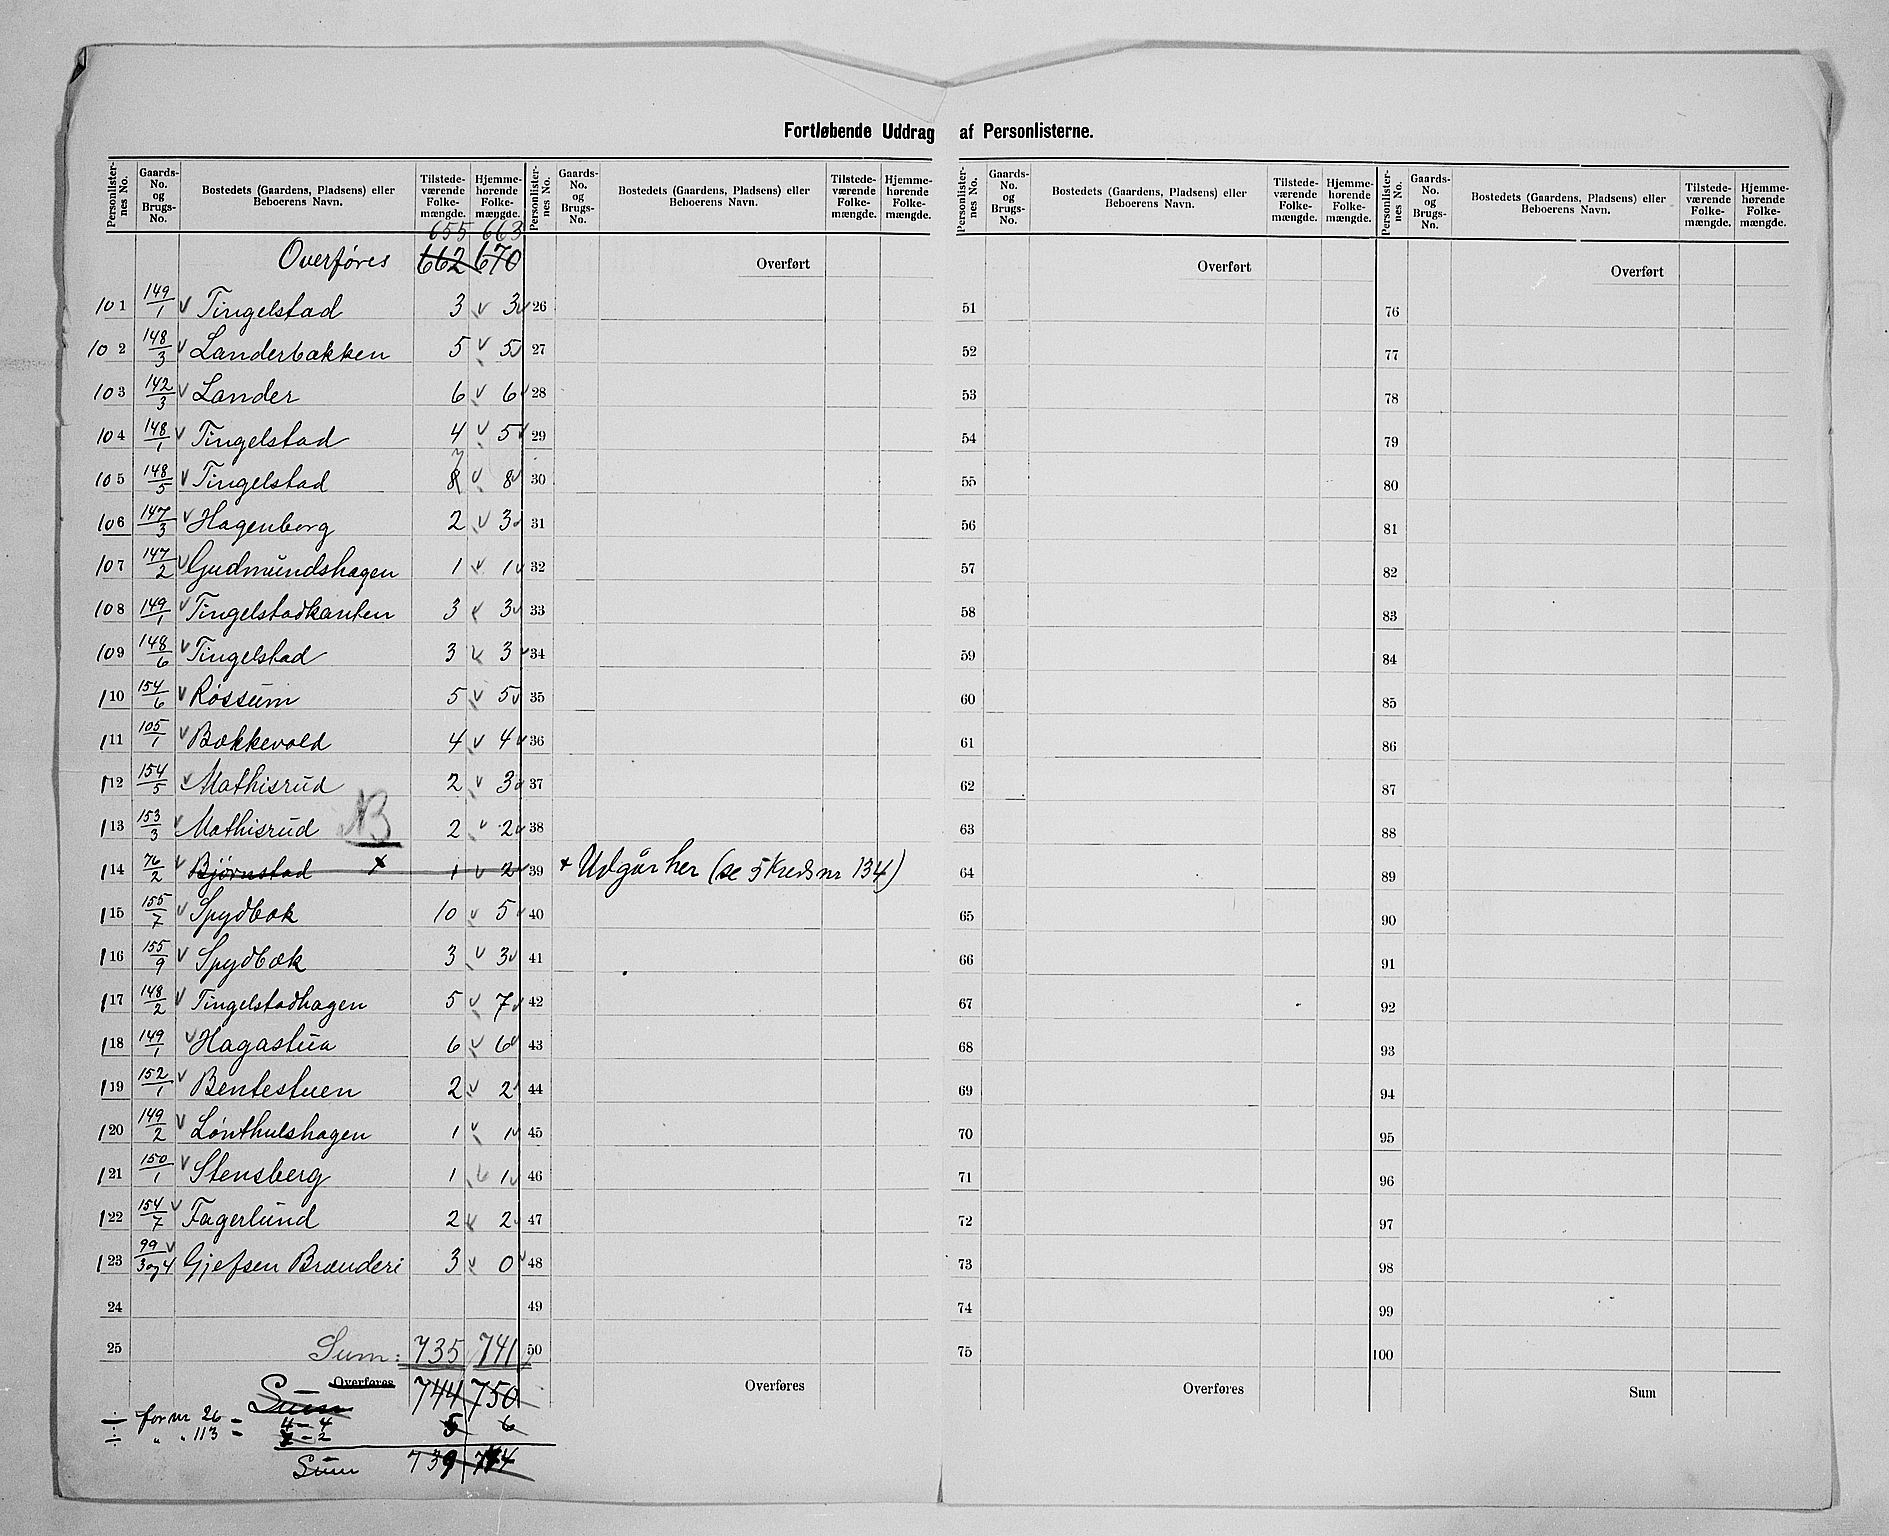 Fortløbende Uddrag af Personlisterne.
Personlisternes No. Gaards-No. og Brugs-No. Bostedets (Gaardens, Pladsens) eller Beboerens Navn. Tilstedeværende Folkemængde. Hjemmehørende Folkemængde.
Personlisternes No. Gaards-No. og Brugs-No. Bostedets (Gaardens, Pladsens) eller Beboerens Navn. Tilstedeværende Folkemængde. Hjemmehørende Folkemængde.
Personlisternes No. Gaards-No. og Brugs-No. Bostedets (Gaardens, Pladsens) eller Beboerens Navn. Tilstedeværende Folkemængde. Hjemmehørende Folkemængde.
Personlisternes No. Gaards-No. og Brugs-No. Bostedets (Gaardens, Pladsens) eller Beboerens Navn. Tilstedeværende Folkemængde. Hjemmehørende Folkemængde.
655 663
Overføres 662 670 Overført Overført Overført
101 149/1 Tingelstad 3 3 26 51 76
102 148/3 Landerbakken 5 5 27 52 77
103 142/3 Lander 6 6 28 53 78
104 148/1 Tingelstad 4 5 29 54 79
7
105 148/5 Tingelstad 8 8 30 55 80
106 147/3 Hagenborg 2 3 31 56 81
107 147/2 Gudmundshagen 1 1 32 57 82
108 149/1 Tingelstadkanten 3 3 33 58 83
109 148/6 Tingelstad 3 3 34 59 84
110 154/6 Røssum 5 5 35 60 85
111 105/1 Bækkevold 4 4 36 61 86
112 154/5 Mathisrud 2 3 37 62 87
113 153/3 Mathisrud NB 2 2 38 63 88
114 76/2 Bjørnstad x 1 2 39 x Udgår her (se 5 Kreds nr 134) 64 89
115 155/7 Spydbæk 10 5 40 65 90
116 155/9 Spydbæk 3 3 41 66 91
117 148/2 Tingelstadhagen 5 7 42 67 92
118 149/1 Hagastua 6 6 43 68 93
119 152/1 Bentestuen 2 2 44 69 94
120 149/2 Lønthulshagen 1 1 45 70 95
121 150/1 Stensberg 1 1 46 71 96
122 154/7 Fagerlund 2 2 47 72 97
123 99/3 og 4 Gjefsen Brænderi 3 0 48 73 98
24 49 74 99
25 Sum: 735 741 50 75 100
Overføres Sum 744 750 Overføres Overføres Sum
÷ for nr 26 - 4 - 4 5 6
÷ " " 113 - 2 - 2
Sum 739 744